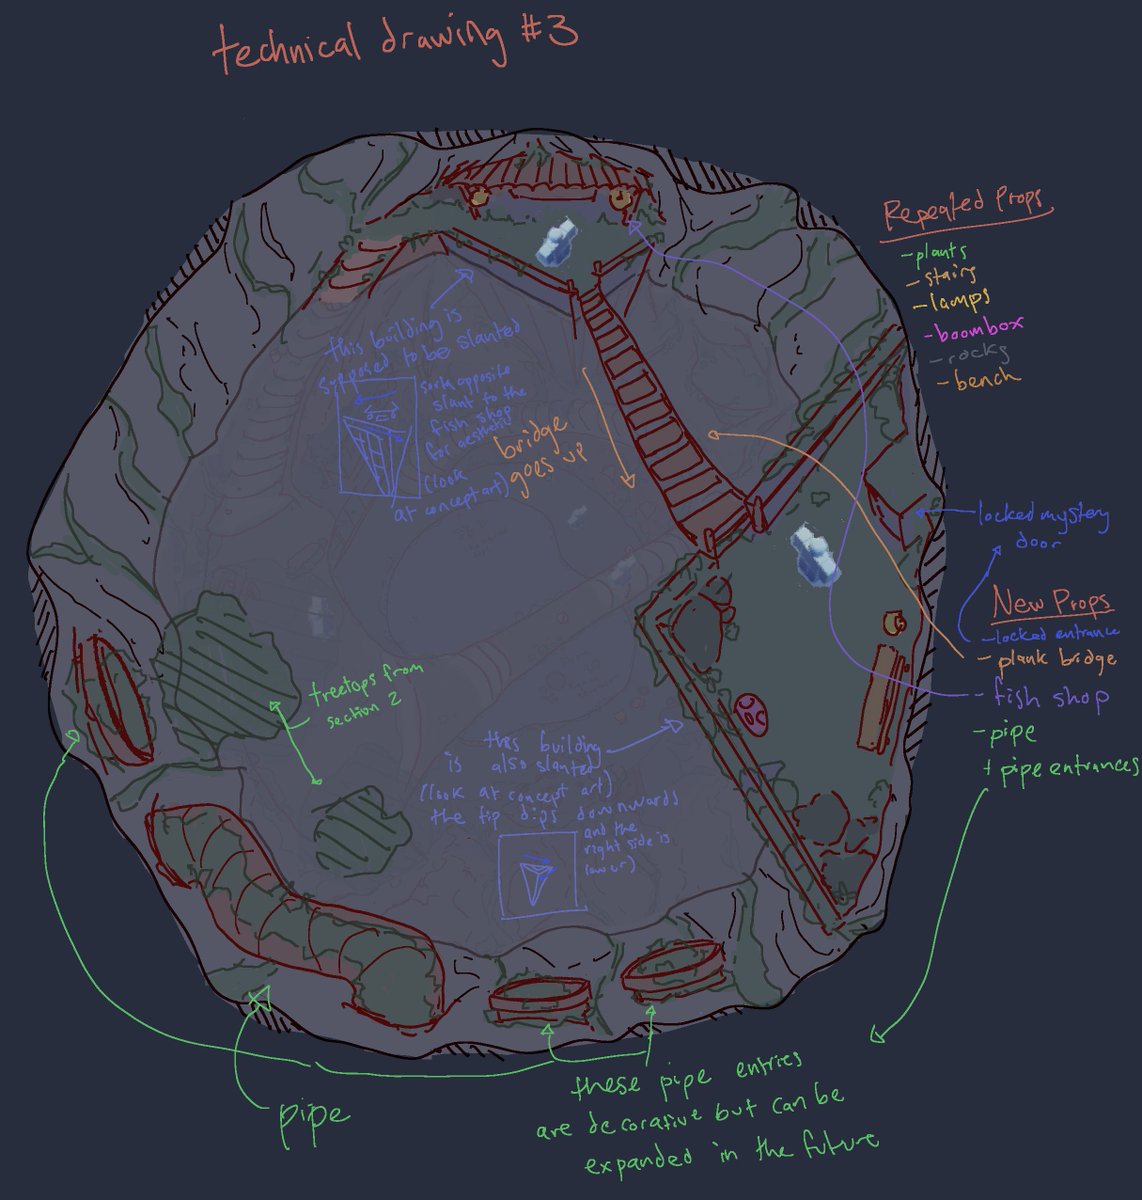 technical drawing #3
Repeated Props
- plants
- stairs
- lamps
- boombox
- rocks
- bench
this building is
supposed to be slanted
sorta opposite
slant to the
fish shop
for aesthetic
(look
at concept art)
bridge
goes up
locked mystery
door
New Props
- locked entrance
- plank bridge
- fish shop
- pipe
+ pipe entrances
treetops from
section 2
this building
is also slanted
(look at concept art)
the tip dips downwards
and the
right side is
lower)
pipe
these pipe entries
are decorative but can be
expanded in the future